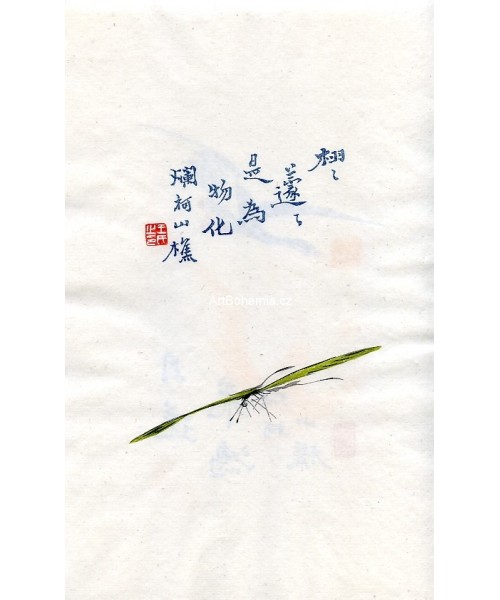 栩〻
蘧〻
是為
物化
爛柯山樵
ArtBohemia.cz